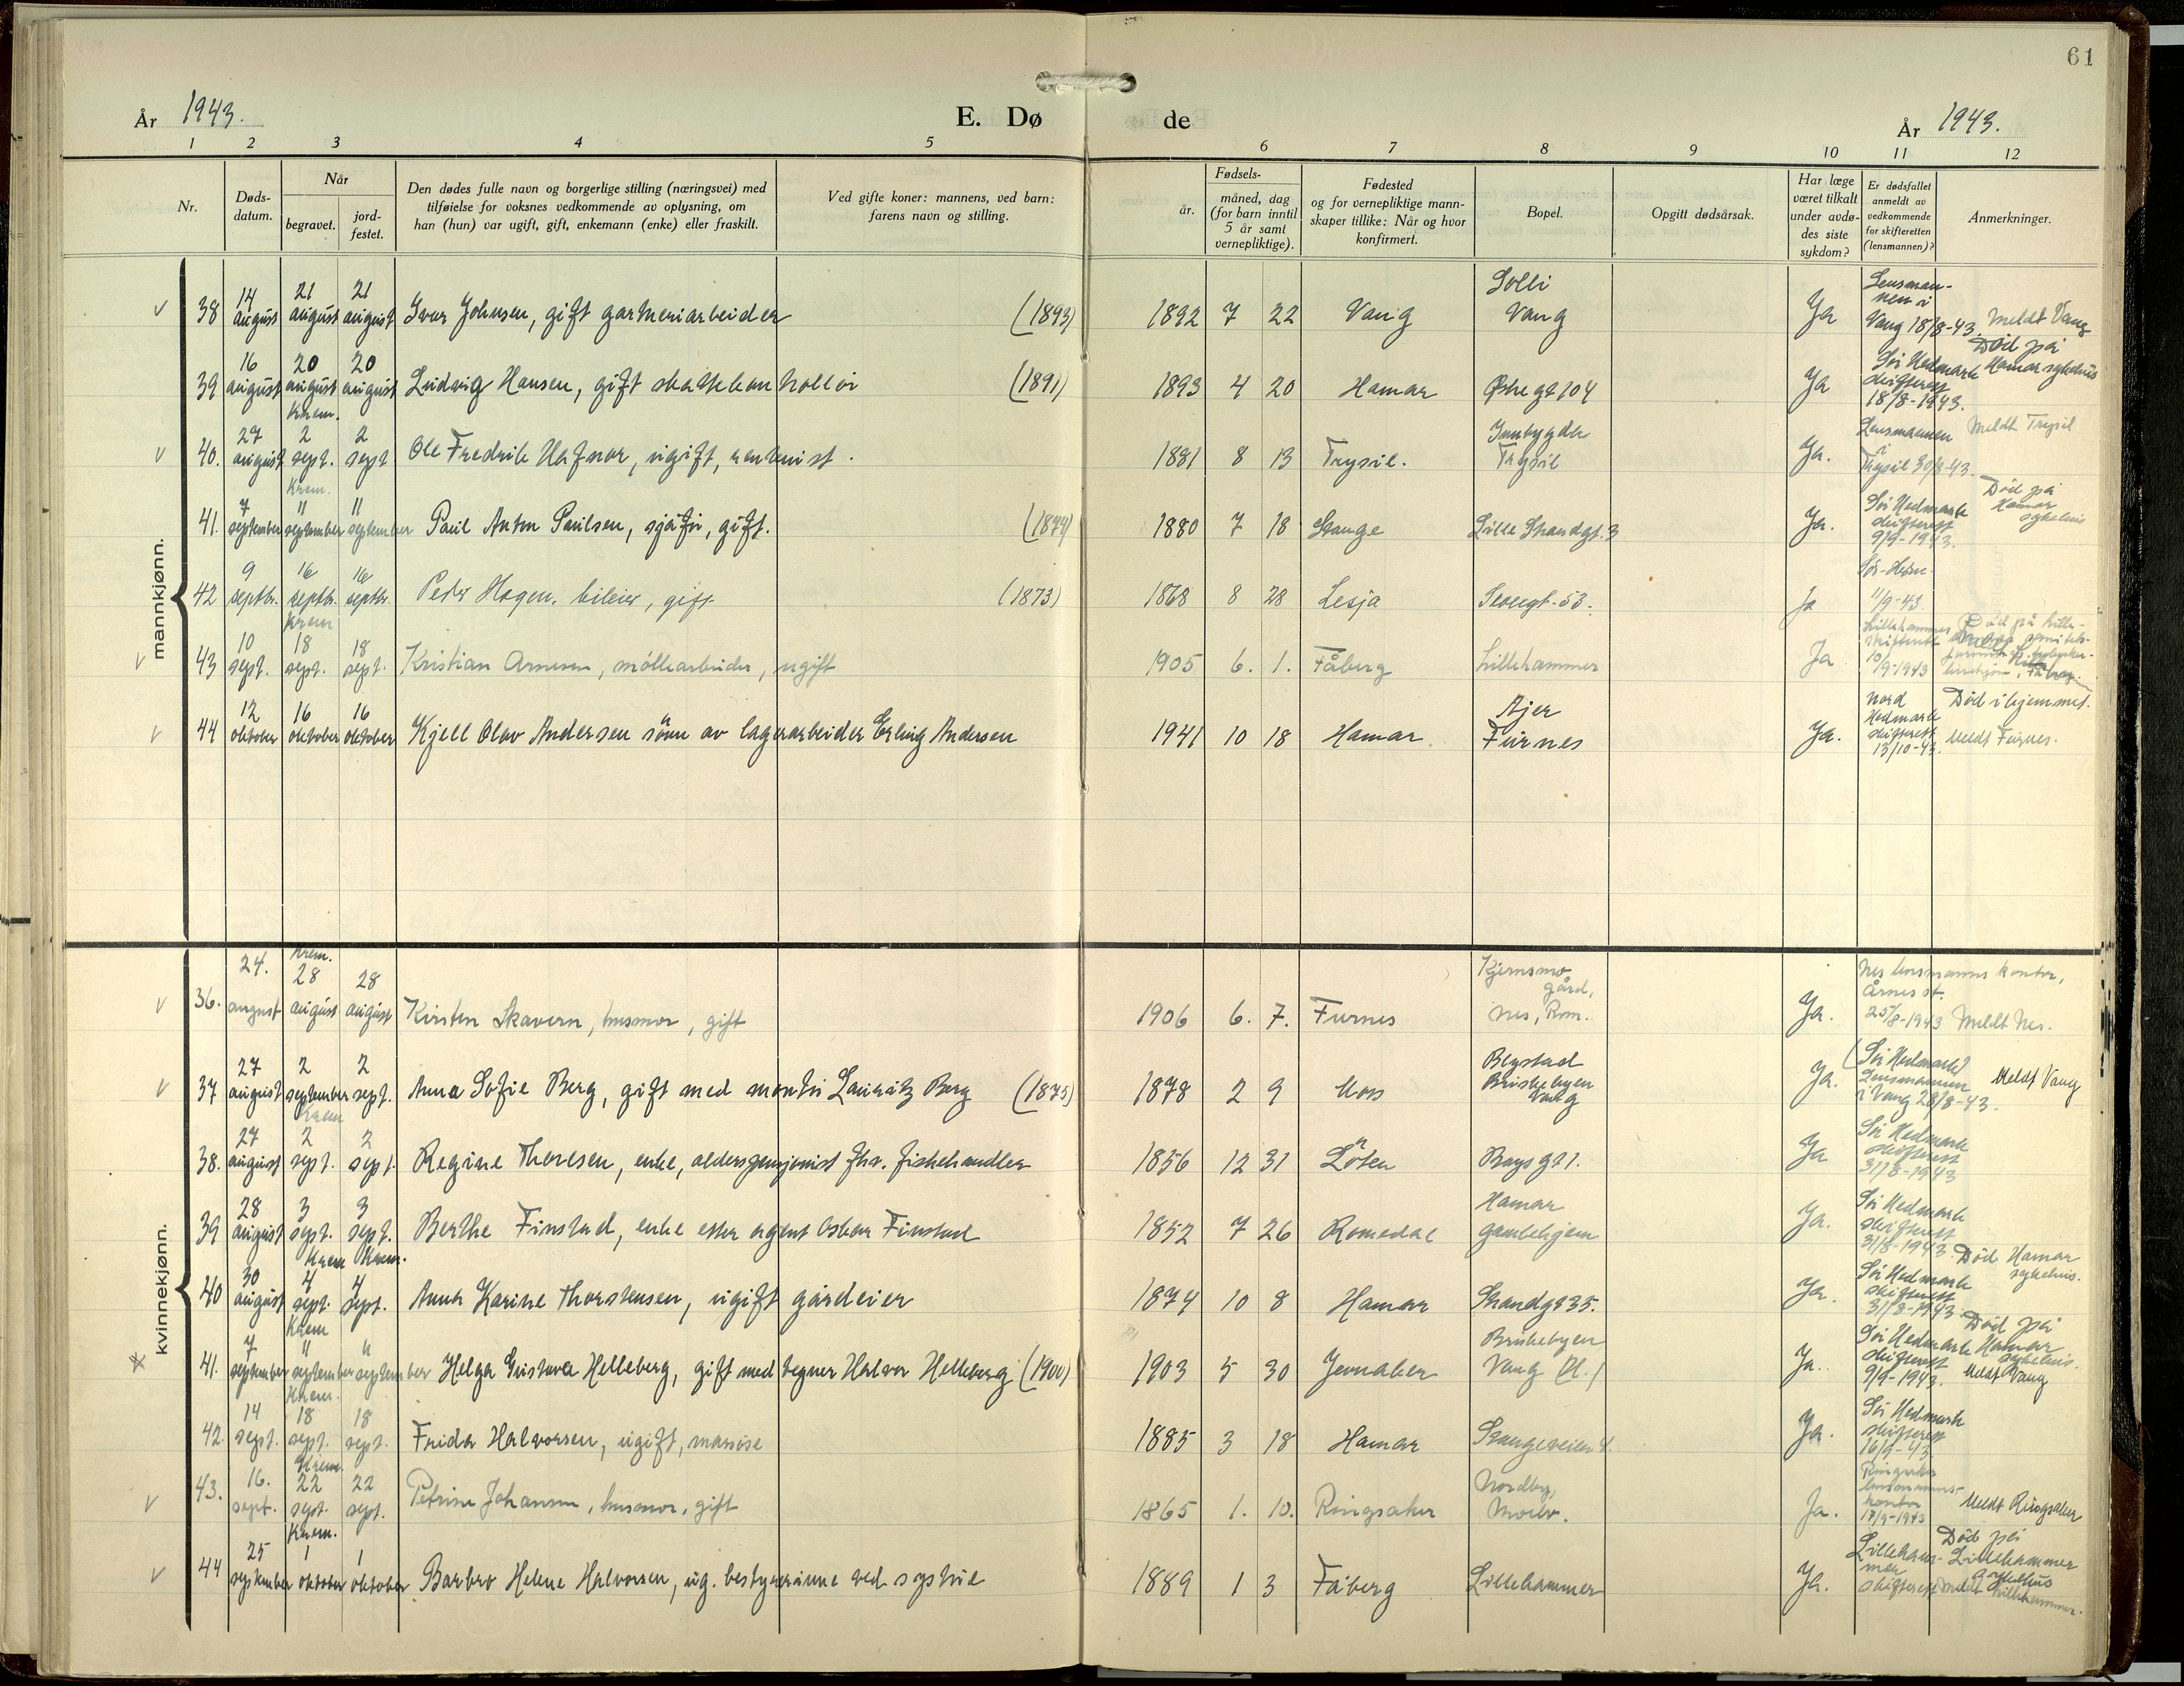 61
År 1943. E. Dø de År 1943.
1 2 3 4 5 6 7 8 9 10 11 12
Nr. Døds-datum. Når begravet. jord-festet. Den dødes fulle navn og borgerlige stilling (næringsvei) med tilføielse for voksnes vedkommende av oplysning, om han (hun) var ugift, gift, enkemann (enke) eller fraskilt. Ved gifte koner: mannens, ved barn: farens navn og stilling. Fødsels- år. måned, dag (for barn inntil 5 år samt vernepliktige). Fødested og for vernepliktige mann-skaper tillike: Når og hvor konfirmert. Bopel. Opgitt dødsårsak. Har læge været tilkalt under avdø-des siste sykdom? Er dødsfallet anmeldt av vedkommende for skifteretten (lensmannen)? Anmerkninger.
mannkjønn.
38 14 august 21 august 21 august Ivar Johnsen, gift gartneriarbeider (1893) 1892 7 22 Vang Solli Vang Ja Lensman-nen i Vang 18/8-43. Meldt Vang
39 16 august 20 august Krem. 20 august Ludvig Hansen, gift (1891) 1893 4 20 Hamar Østregt 104 Ja Sør Hedmark skifterett 18/8-1943. Død på Hamar sykehus
40. 27 august 2 sept. Krem. 2 sept Ole Fredrik Hafnor, ugift, rentenist. 1881 8 13 Trysil. Innbygda Trysil Ja. Lensmannen i Trysil 30/8-43. Meldt Trysil
41. 7 september 11 september 11 september Paul Anton Paulsen, sjåfør, gift. (1874) 1880 7 18 Stange Lille Strandgt. 3 Ja. Sør Hedmark skifterett 9/9-1943. Død på Hamar sykehus
42 9 septbr. 16 septbr. Krem 16 septbr. Peder Hagen, bileier, gift (1873) 1868 8 28 Lesja 53. Ja Sør-Hedm. 11/9-43
43 10 sept. 18 sept. 18 sept. Kristian Arnesen, møllearbeider, ugift 1905 6. 1. Fåberg Lillehammer Ja Lillehammer skifterett 10/9-1943 Død på Lille-
44 12 oktober 16 oktober 16 oktober Kjell Olav Andersen sønn av lagerarbeider Erling Andersen 1941 10 18 Hamar Ajer Furnes Ja. Nord Hedmark skifterett 13/10-43. Død i hjemmet. Meldt Furnes.
kvinnekjønn.
36. 24. august Krem. 28 august 28 august Kirsten Skavern, husmor, gift 1906 6. 7. Furnes Kjernsmo gård, Nes, Rom. Ja. Nes lensmanns kontor, Årnes st. 25/8-1943 Meldt Nes.
37 27 august 2 september Krem 2 sept. Anna Sofie Berg, gift med montør Lauritz Berg (1875) 1878 2 9 Moss Brystad Briskebyen Vang Ja. (Sør Hedmark) Lensmannen i Vang 28/8-43. Meldt Vang
38. 27 august 2 sept. 2 sept. Regine Thoresen, enke, alderspensjonist fhv. fiskehandler 1856 12 31 Løten Ja Sør Hedmark skifterett 31/8-1943
39 28 august 3 sept. Krem 3 sept. Krem. Berthe Finstad, enke etter agent Oskar Finstad 1852 7 26 Romedal Hamar gamlehjem Ja. Sør Hedmark skifterett 31/8-1943.
40 30 august 4 sept. Krem 4 sept. Anna Karine Thorstensen, ugift gårdeier 1874 10 8 Hamar Strandgt 35. Ja. Sør Hedmark skifterett 31/8-1943. Død Hamar sykehus.
41. 7 september 11 september Krem. 11 september Helga Gustava Helleberg, gift med tegner Halvor Helleberg (1900) 1903 5 30 Jevnaker Briskebyen Vang (H.) Ja. Sør Hedmark skifterett 9/9-1943. Død på Hamar sykehus. Meldt Vang
42 14 sept. 18 sept. Krem. 18 sept. Frida Halvorsen, ugift, massøse 1885 3 18 Hamar Stangeveien 4. Ja. Sør Hedmark skifterett 16/9-43
43. 16. sept. 22 sept. Krem. 22 sept. Petrine Johansen, husmor, gift 1865 1. 10. Ringsaker Nordby, Moelv. Ja. Ringsaker lensmanns-kontor 17/9-1943 Meldt Ringsaker
44 25 september 1 oktober 1 oktober Barbro Helene Halvorsen, ug. bestyrerinne ved systue 1889 1 3 Fåberg Lillehammer Ja. Lilleham-mer skifterett Død på Lillehammer sykehus Meldt Lillehammer.